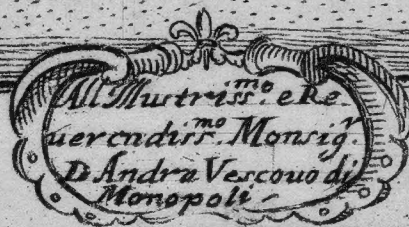 All Illustriss.mo e Re
uerendiss.mo Monsig.r
D Andra Vescovo di
Monopoli